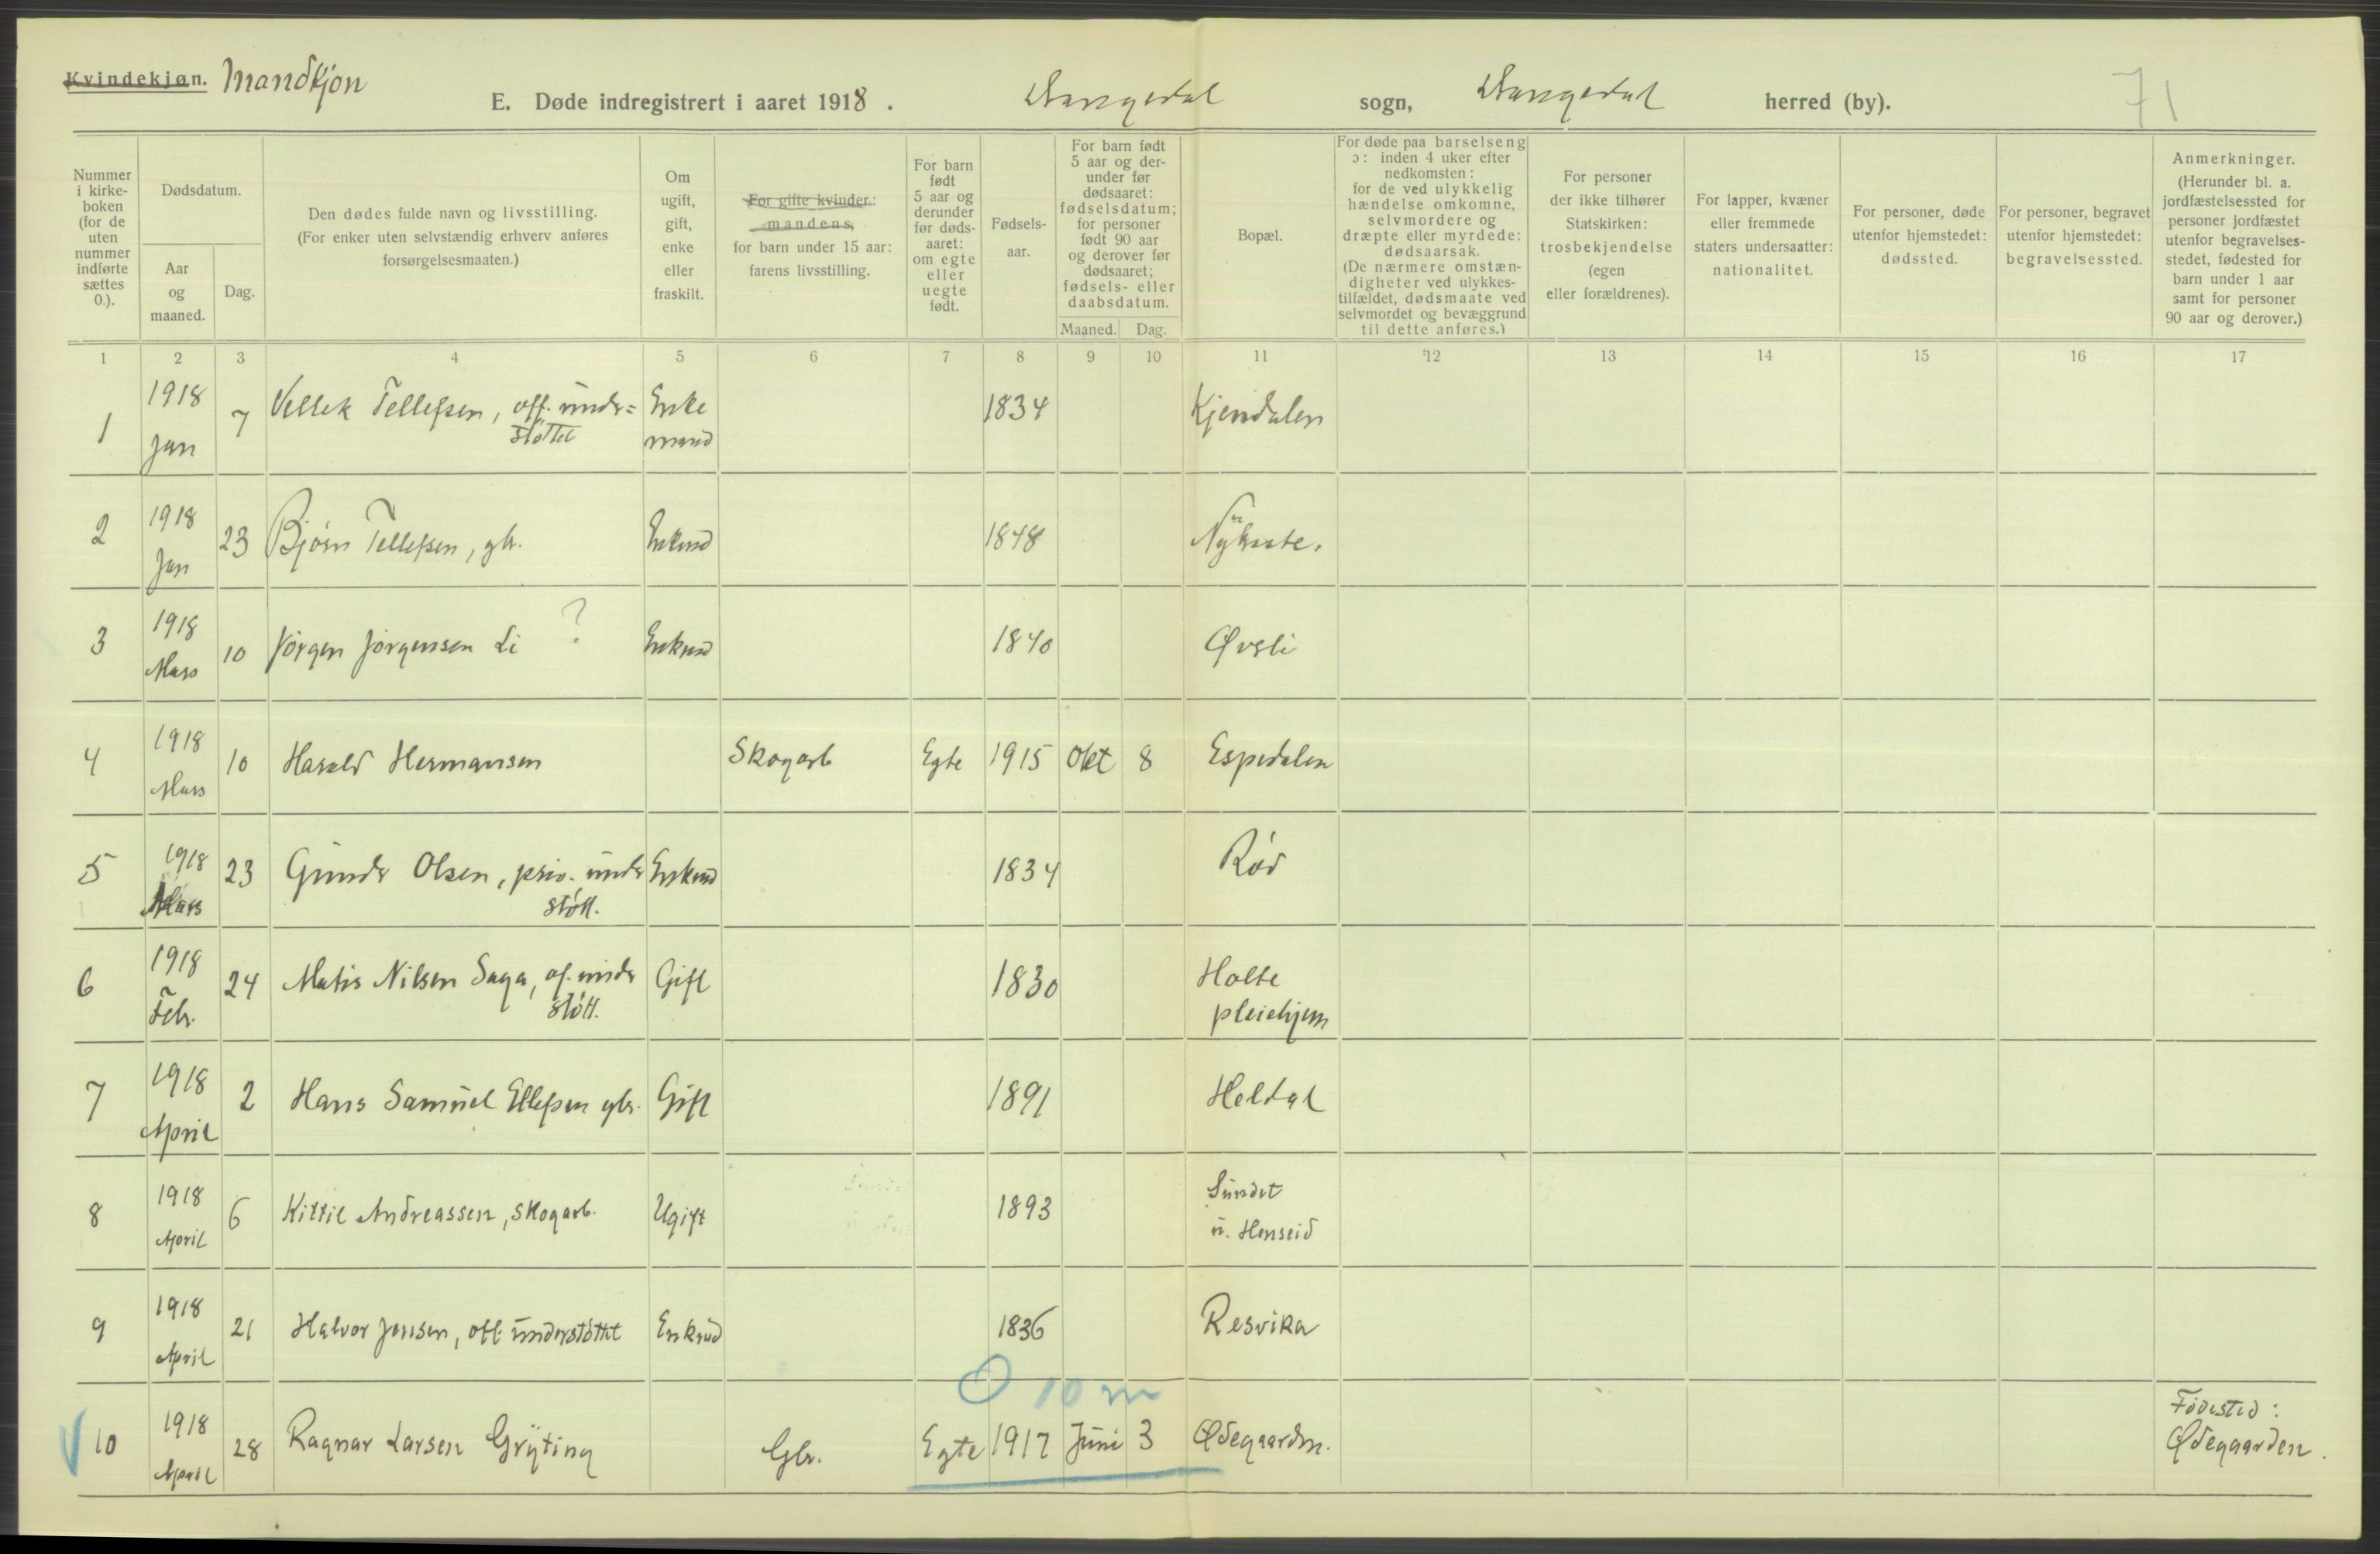 Kvindekjøn. Mandkjøn
E. Døde indregistrert i aaret 1918. Drangedal sogn, Drangedal herred (by). 71
Nummer i kirke-boken (for de uten nummer indførte sættes 0.).
Dødsdatum.
Aar og maaned.
Dag.
Den dødes fulde navn og livsstilling.
(For enker uten selvstændig erhverv anføres
forsørgelsesmaaten.)
Om ugift, gift, enke eller fraskilt.
For gifte kvinder:
mandens,
for barn under 15 aar:
farens livsstilling.
For barn født 5 aar og derunder før døds-aaret: om egte eller uegte født.
Fødsels-aar.
For barn født 5 aar og der-under før dødsaaret: fødselsdatum; for personer født 90 aar og derover før dødsaaret; fødsels- eller daabsdatum.
Maaned. Dag.
Bopæl.
For døde paa barselseng ɔ: inden 4 uker efter nedkomsten: for de ved ulykkelig hændelse omkomne, selvmordere og dræpte eller myrdede: dødsaarsak. (De nærmere omstæn-digheter ved ulykkes-tilfældet, dødsmaate ved selvmordet og bevæggrund til dette anføres.)
For personer der ikke tilhører Statskirken: trosbekjendelse (egen eller forældrenes).
For lapper, kvæner eller fremmede staters undersaatter: nationalitet.
For personer, døde utenfor hjemstedet: dødssted.
For personer, begravet utenfor hjemstedet: begravelsessted.
Anmerkninger. (Herunder bl. a. jordfæstelsessted for personer jordfæstet utenfor begravelses-stedet, fødested for barn under 1 aar samt for personer 90 aar og derover.)
1 2 3 4 5 6 7 8 9 10 11 12 13 14 15 16 17
1 1918 Jan 7 Vellek Tellefsen, off. under= støttet Enke mand 1834 Kjendalen
2 1918 Jan 23 Bjørn Tellefsen, gbr. Enkmd 1848
3 1918 Mars 10 Jørgen Jørgensen Li ? Enkmd 1840 Øvsli
4 1918 Mars 10 Harald Hermansen Skogarb Egte 1915 Okt 8 Espedalen
5 1918 Mars 23 Gunder Olsen, priv. under støtt. Enkmd 1834 Rød
6 1918 Febr. 24 Matis Nilsen Saga, of. under støtt. Gift 1830 Holte pleiehjem
7 1918 April 2 Hans Samuel Ellefsen gbr. Gift 1891 Heldal
8 1918 April 6 Kittil Andreassen, skogarb. Ugift 1893 Sundet u. Henseid
9 1918 April 21 Halvor Jensen, off. understøttet Enkmd 1836 Resvika
0 10 m
10 1918 April 28 Ragnar Larsen Gryting Gbr. Egte 1917 Juni 3 Ødegaarden. Fødested: Ødegaarden.